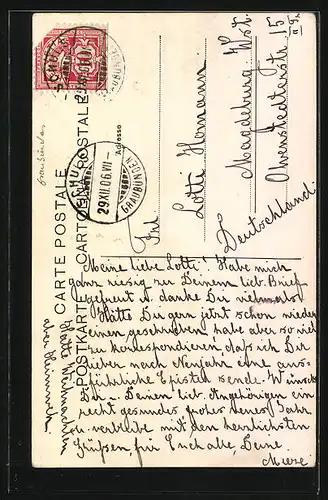 CARTE POSTALE
POSTKARTE CARTOLINA POSTALE
Adresse
10
CHUR
GRAUBÜNDEN
29.XII.06.VII
Graubünden
Frl.
Lotti Homann
Magdeburg Wst.
Olvenstedterstr 15
Deutschland.
Meine liebe Lotti! Habe mich
ganz riesig zu Deinem lieb. Brief
gefreut u. danke Dir vielmals
Hätte Dir gern jetzt schon wieder
einen geschrieben habe aber so viel
zu korrespondieren, dass ich Dir
lieber nach Neujahr eine aus-
führliche Epistel sende. Wünsche
Dir u. Deinen lieb. Angehörigen ein
recht gesundes, frohes neues Jahr
u. verbleibe mit den herzlichsten
Grüssen für Euch alle, Deine
Mieze
Hatte Weihnachten
aber Heimweh.